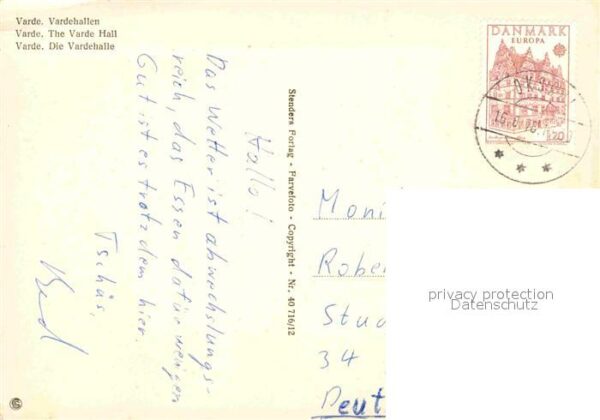 Varde. Vardehallen
Varde. The Varde Hall
Varde. Die Vardehalle
Hallo!
Das Wetter ist abwechslungs-
reich, das Essen dafür weniger
Gut ist es trotzdem hier.
Tschüs,
Bernd
Stenders Forlag - Farvefoto - Copyright - Nr. 40 716/12
DANMARK
EUROPA
120
Moni
Rober
Stud
34
Deut
privacy protection
Datenschutz